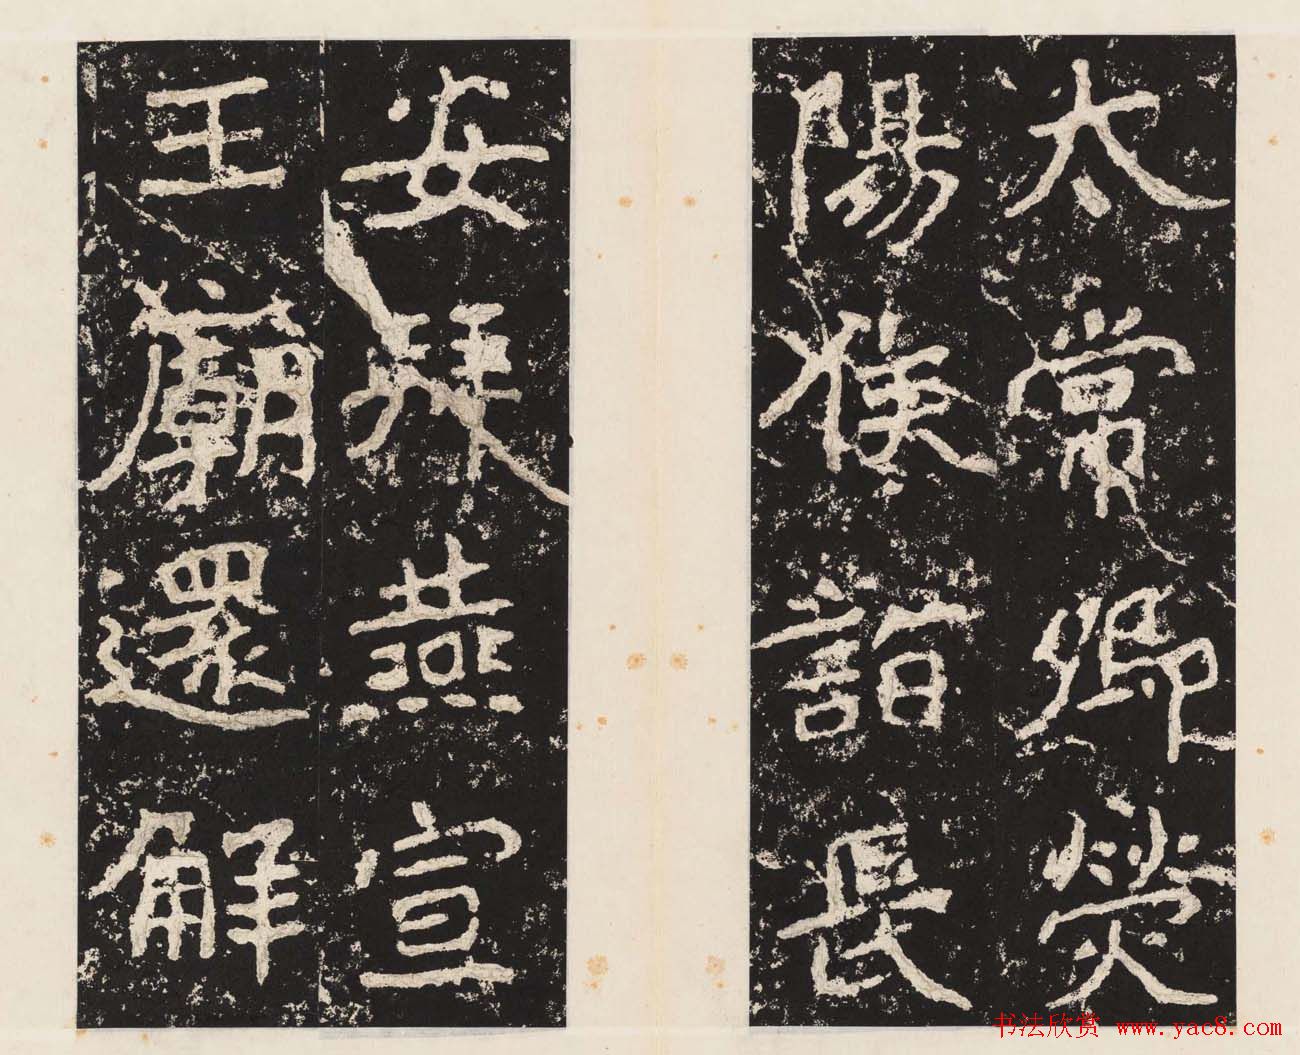 太常卿熒
陽侯詣長
安拜燕宣
王廟還解
书法欣赏 www.yac8.com